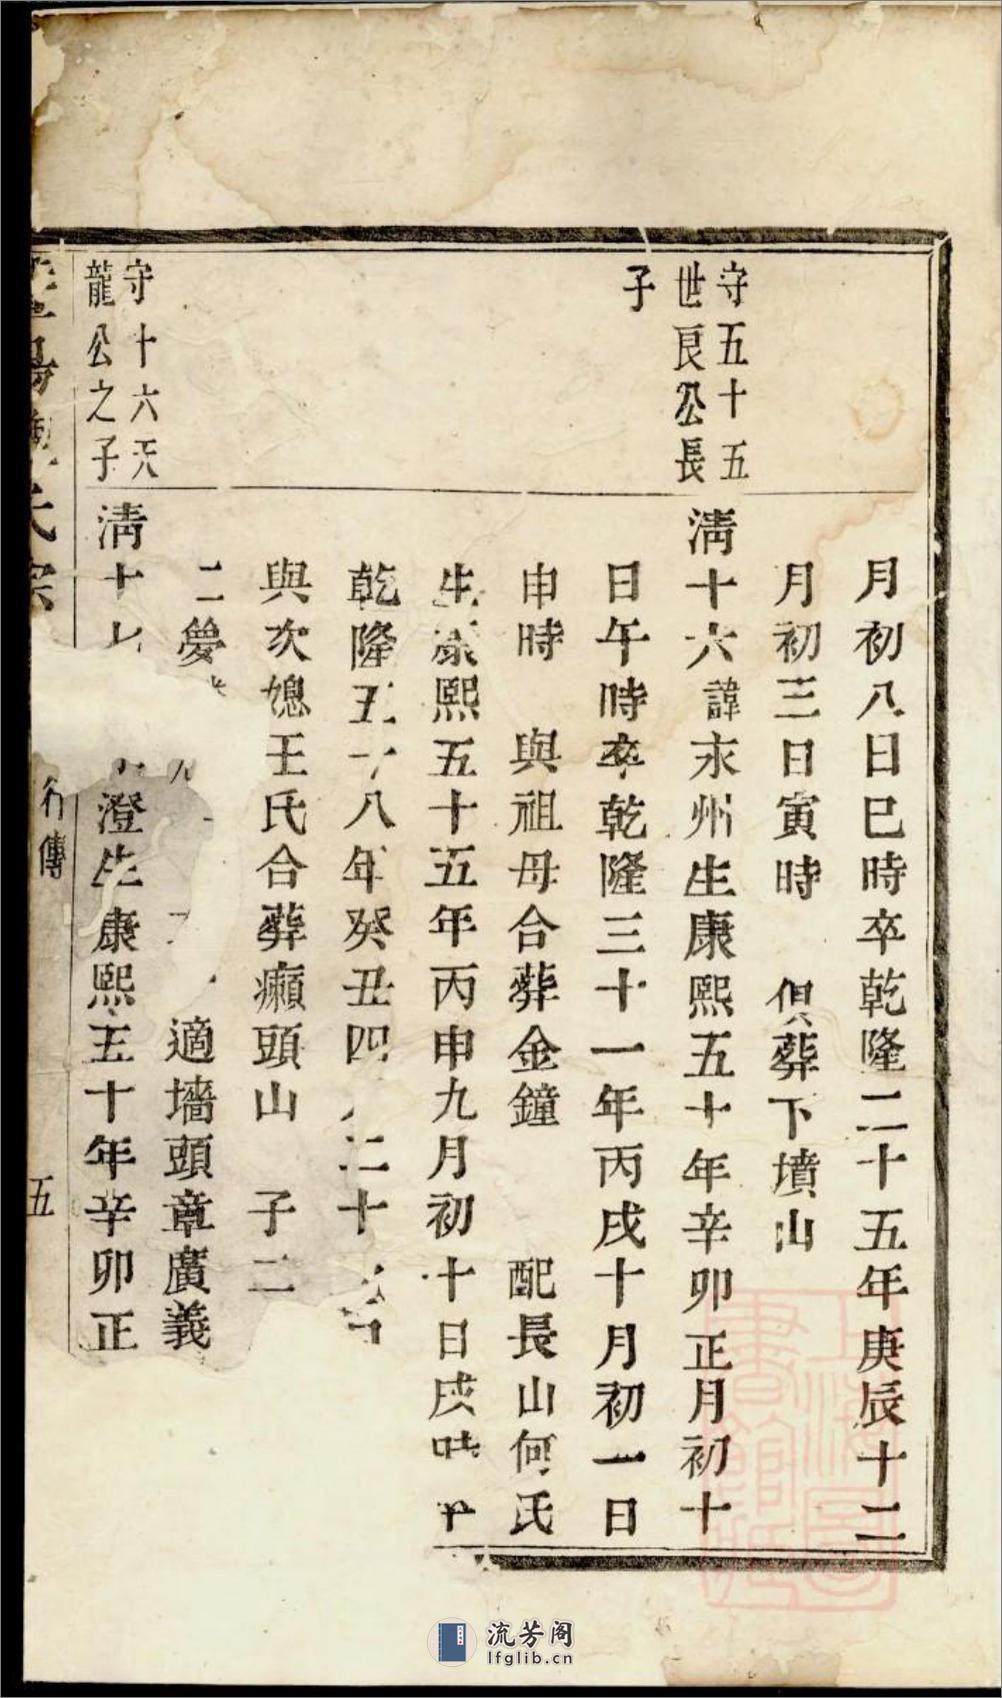 月初八日巳時卒乾隆二十五年庚辰十二
月初三日寅時 俱葬下墳山
守五十五
世良公長
子
清十六諱永州生康熙五十年辛卯正月初十
日午時卒乾隆三十一年丙戌十月初一日
申時 與祖母合葬金鐘 配長山何氏
生康熙五十五年丙申九月初十日戌時卒
乾隆五十八年癸丑四 二十
與次媳王氏合葬癩頭山 子二
二夢 適墻頭章廣義
守十六天
龍公之子
清十七 澄生康熙五十年辛卯正
氏宗
行傳
五
上海圖書館藏
流芳阁
lfglib.cn